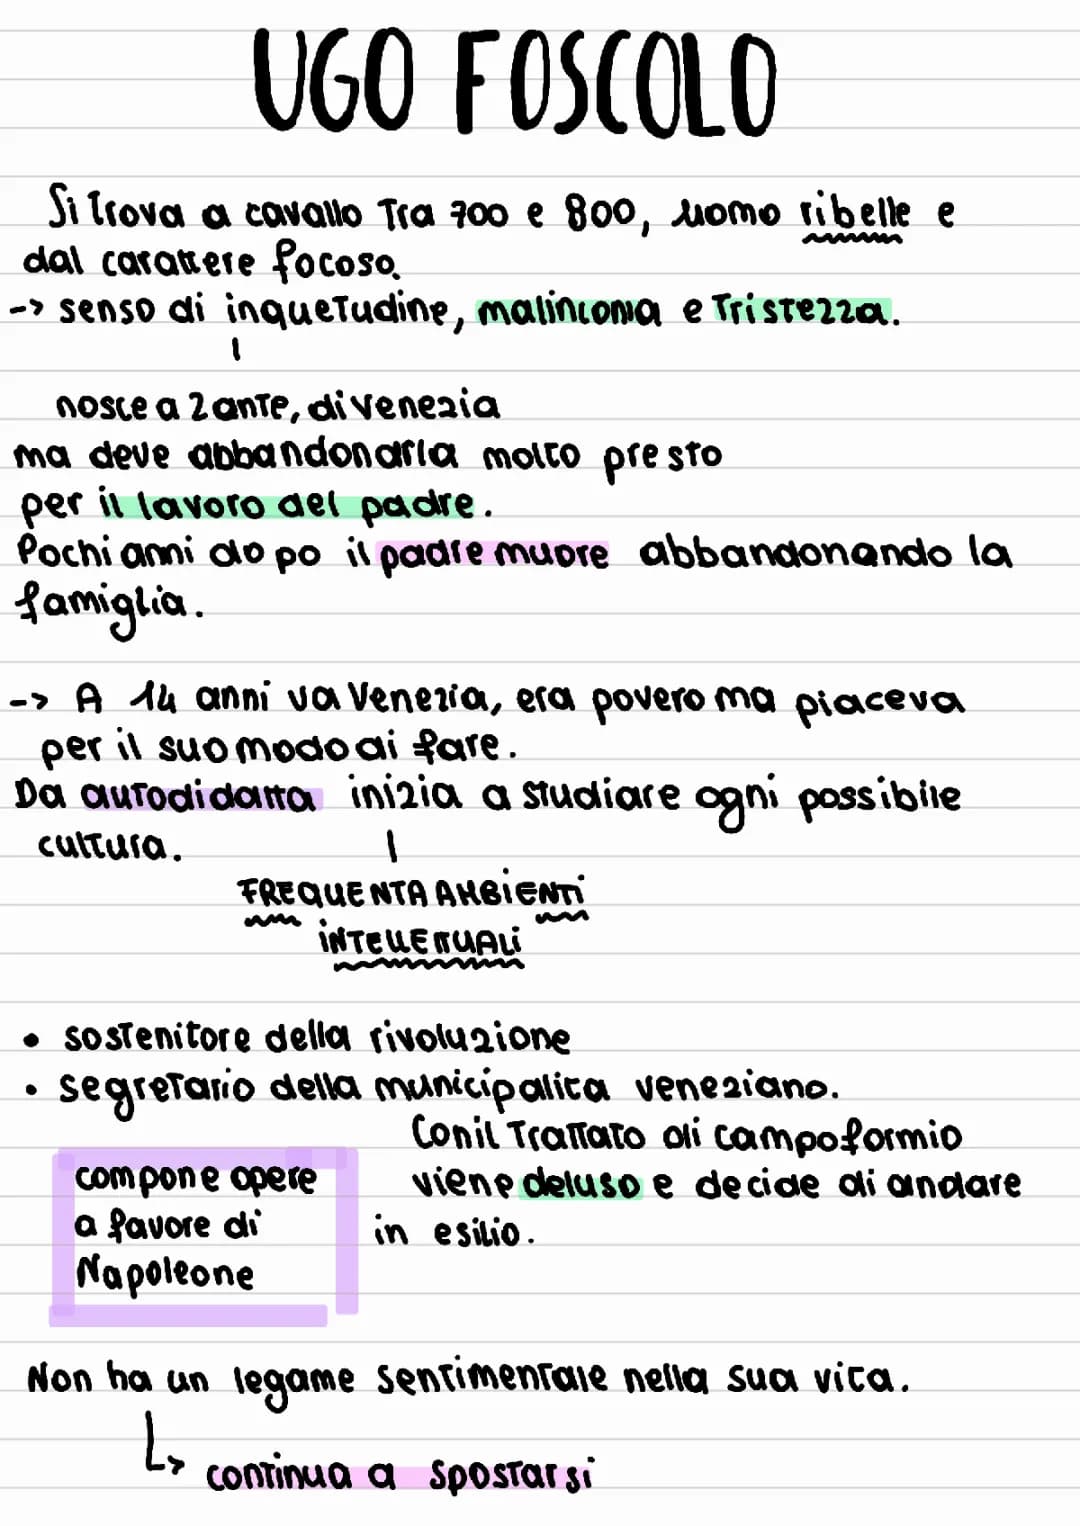 UGO FOSCOLO
Si trova a cavallo Tra 700 e 800, uomo ribelle e
dal carattere focoso.
-> senso di inquetudine, malinconia e Tristezza.
nasce a Zante, di venezia
ma deve abbandonarla molto presto
per il lavoro del padre.
Pochi anni dopo il padre muore abbandonando la
famiglia.
-> A 14 anni va Venezia, era povero ma piaceva
per il suo modo di fare.
Da autodidatta inizia a studiare ogni possibile
cultura.
FREQUENTA AMBIENTI
INTELLETTUALI
• sostenitore della rivoluzione
• segretario della municipalita veneziano.
Con il Trattato di campoformio
viene deluso e decide di andare
in esilio.
compone opere
a favore di
Napoleone
Non ha un legame sentimentale nella sua vita.
continua a spostarsi